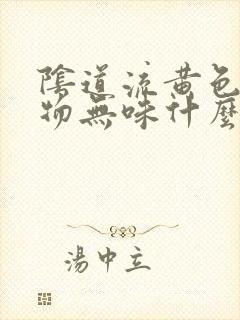 陰道流黃色
物無味什麼
湯中立